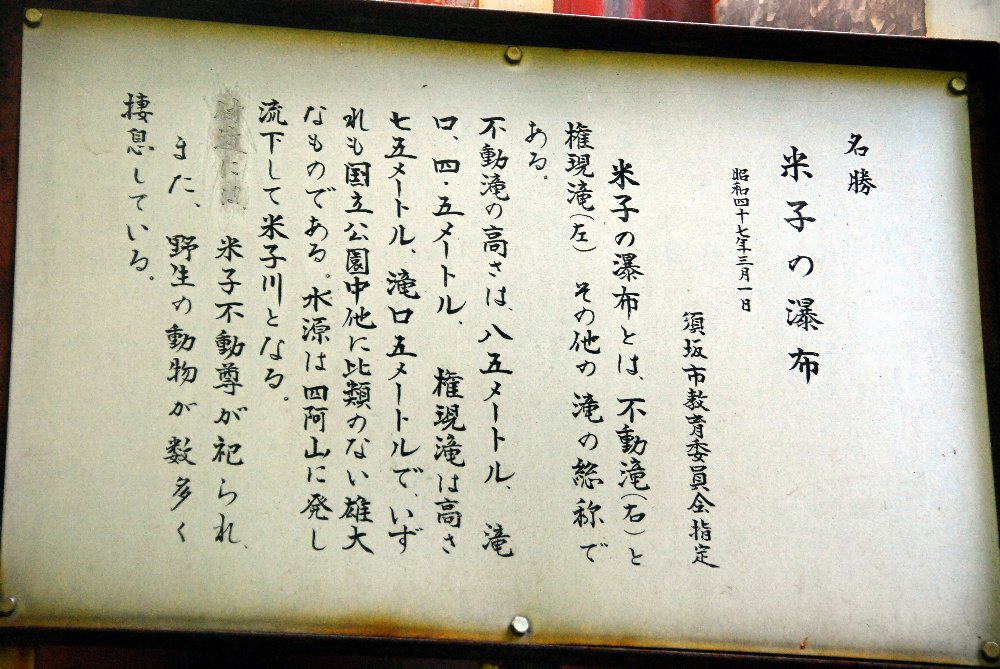 名勝
米子の瀑布
昭和四十七年三月一日
須坂市教育委員会指定
米子の瀑布とは、不動滝(右)と
権現滝(左) その他の滝の総称で
ある。
不動滝の高さは、八五メートル、滝
口、四・五メートル、権現滝は高さ
七五メートル、滝口五メートルで、いず
れも国立公園中他に比類のない雄大
なものである。水源は四阿山に発し
流下して米子川となる。
米子不動尊が祀られ、
また、野生の動物が数多く
棲息している。